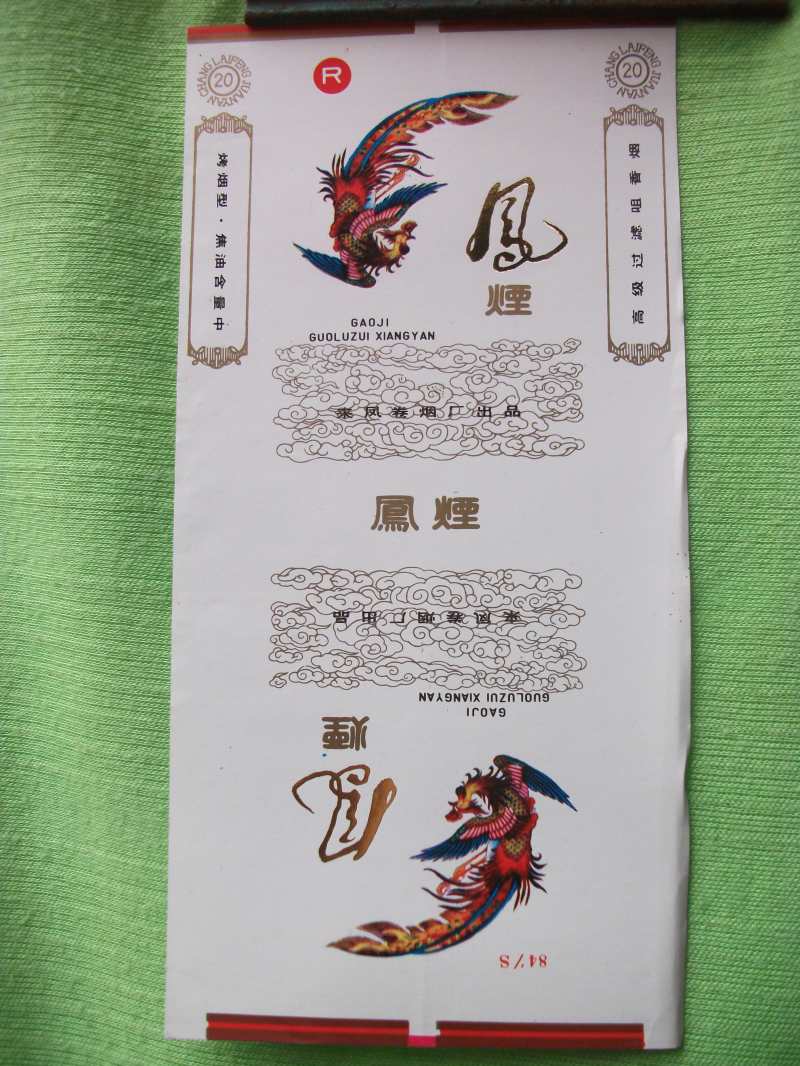 CHANG LAIFENG JUANYAN
20
烤烟型·焦油含量中
R
鳳
煙
GAOJI
GUOLUZUI XIANGYAN
来凤卷烟厂出品
CHANG LAIFENG JUANYAN
20
高级过滤咀香烟
鳳煙
来凤卷烟厂出品
GAOJI
GUOLUZUI XIANGYAN
煙
鳳
84%S